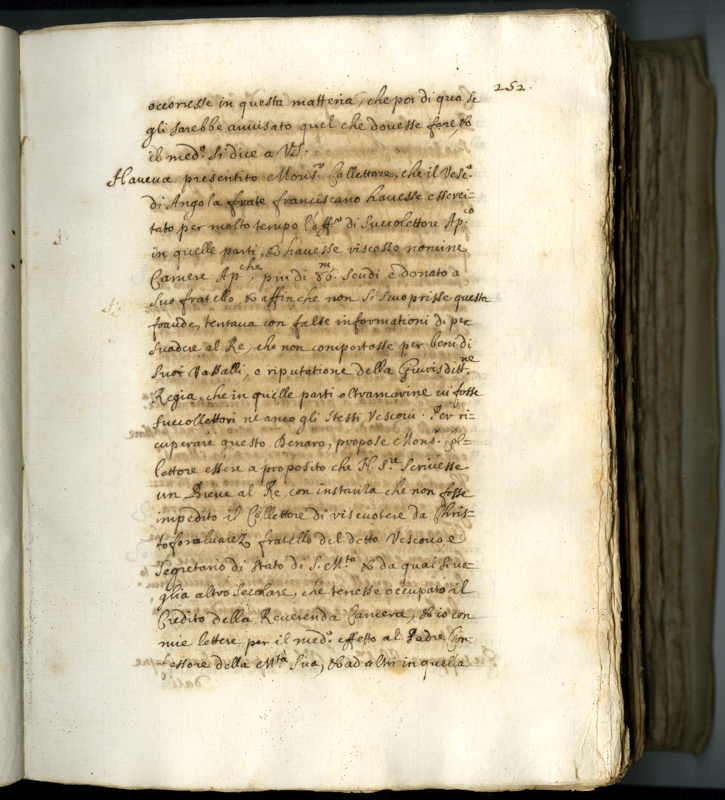 252.
occorresse in questa matteria, che poi di qua se
gli sarebbe avvisato quel che dovesse fare, &
il med.º si dice a V.S.
Haveva presentito Mons.r Collettore, che il Vesc.º
di Angola frate franciscano havesse esserci-
tato per molto tempo l'off.º di Succolettore Ap.co
in quelle parti, & havesse riscosso nomine
Camere Ap.che, piu di scudi e donato a
suo fratello, & affinche non si scuoprisse questa
fraude, tentava con false informationi di per
suadere al Re, che non comportasse per beni di
suoi Vassalli, e riputatione della Giurisditt.ne
Regia, che in quelle parti oltramarine vi fosse
succollettori ne anco gli stessi Vescovi. Per ri-
cuperare questo Denaro, propose Mons.r Col=
lettore essere a proposito che N. S.re scrivesse
un Breve al Re, con instanza che non fosse
impedito il Collettore di riscuotere da Chris-
toforo Alvarez fratello del detto Vescovo e
Segretario di Stato di S. M.ta & da qual si vo-
glia altro Secolare, che tenesse occupato il
Credito della Reverenda Camera, & io con
mie lettere per il med.º effetto al Padre Con-
fessore della M.ta Sua, & ad altri in quella